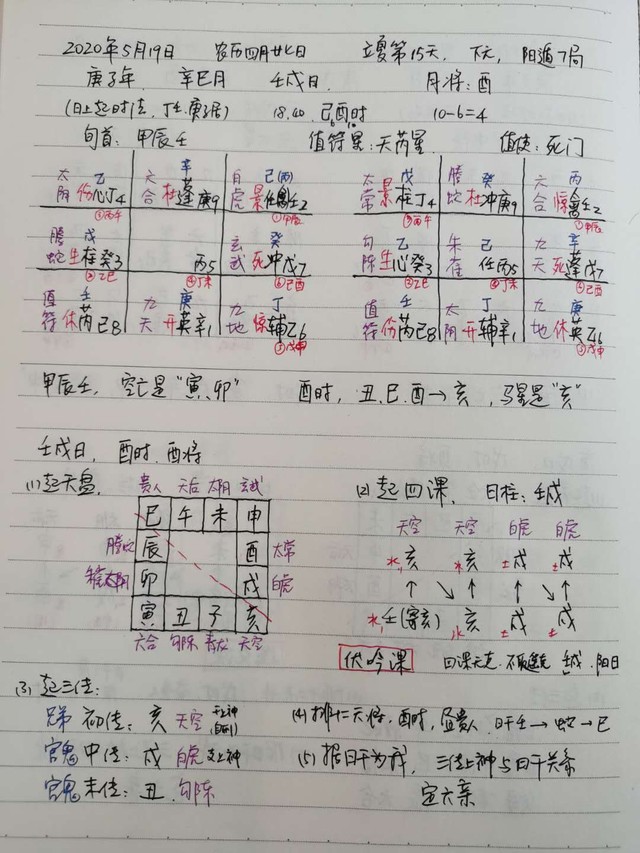 2020年5月19日 农历四月廿七日 立夏第15天, 下元, 阳遁7局
庚子年, 辛巳月 壬戌日, 月将:酉
(日上起时法, 丁壬庚子居) 18.40, 己酉时 10-6=4
旬首: 甲辰壬 值符星:天芮星 值使:死门
太 乙 六 辛 白 己(丙) 太 戊 腾 癸 六 丙
阴 伤心丁4 合 杜蓬庚9 虎 景任禽壬2 常 景柱丁4 蛇 杜冲庚9 合 惊禽壬2
①丙午 ①甲辰 ③丙午 ①甲辰
腾 戊 玄 癸 勾 乙 朱 己 九 辛
蛇 生柱癸3 丙5 武 死冲戊7 陈 生心癸3 雀 任丙5 天 死蓬戊7
②乙巳 ④丁未 ⑥己酉 ②乙巳 ④丁未 ⑥己酉
值 壬 九 庚 九 丁 值 壬 太 丁 九 庚
符 休芮己8 天 开英辛1 地 惊辅乙6 符 伤芮己8 阴 开辅辛1 地 休英乙6
⑤戊申 ⑤戊申
甲辰壬, 空亡是"寅、卯" 酉时, 丑、巳、酉→亥, 马星是"亥"
壬戌日, 酉时、酉将
(1)起天盘, (2)起四课, 日柱: 壬戌
贵人 天后 太阴 玄武
巳 午 未 申
天空 天空 白虎 白虎
腾蛇 辰 酉 太常
水亥 水亥 土戌 土戌
卯 戌 白虎
↑ ↘ ↑ ↘ ↑ ↘ ↑
寅 丑 子 亥
水壬(寄亥) 水亥 土戌 土戌
六合 勾陈 青龙 天空
伏吟课 四课无克, 壬戌, 阳日
(3) 起三传:
兄弟 初传: 亥 天空 干上神
官鬼 中传: 戌 白虎 支上神
官鬼 末传: 丑 勾陈
(4) 排十二天将, 酉时, 昼贵人, 日干壬→蛇→巳
(5) 据日干为我, 三传上神与日干关系
定六亲